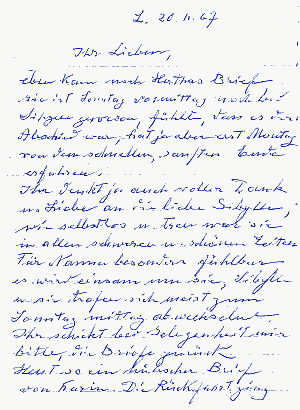 Z. 20. 11. 67
Ihr Lieben,
eben kam noch Herthas Brief
sie ist Sonntag vormittag noch bei
gewesen, fühlte, dass es der
Abschied war, hat ja aber erst Montag
von dem schnellen, sanften Ende
erfahren.
Ihr denkt ja auch voller Dank
u. Liebe an die liebe Sibylle,
wie selbstlos u. treu war sie
in allen schweren u. schönen Zeiten
Für Nanna besonders fühlbar
es wird einsam um sie, Sibylle
u. sie trafen sich meist zum
Sonntag mittag abwechselnd.
Ihr schickt bei Gelegenheit mir
bitte, die Briefe zurück
Heut so ein hübscher Brief
von Karin. Die Rückfahrt ging